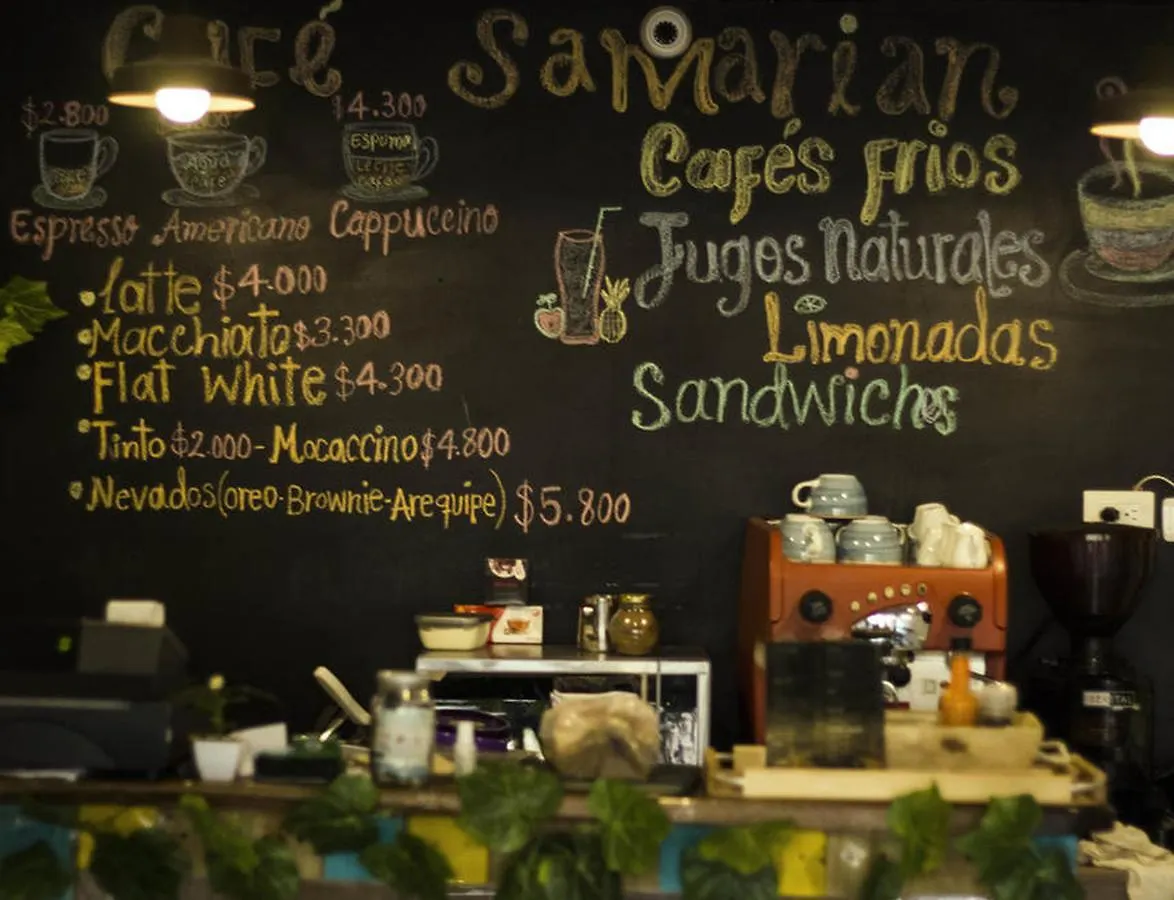 Café Samarian
$2.800
$4.300
Espuma
Leche
Café
Agua
Café
Espresso Americano Cappuccino
Latte $4.000
Macchiato $3.300
Flat White $4.300
Tinto $2.000 - Mocaccino $4.800
Nevados (oreo-Brownie-Arequipe) $5.800
Cafés fríos
Jugos Naturales
Limonadas
Sandwiches